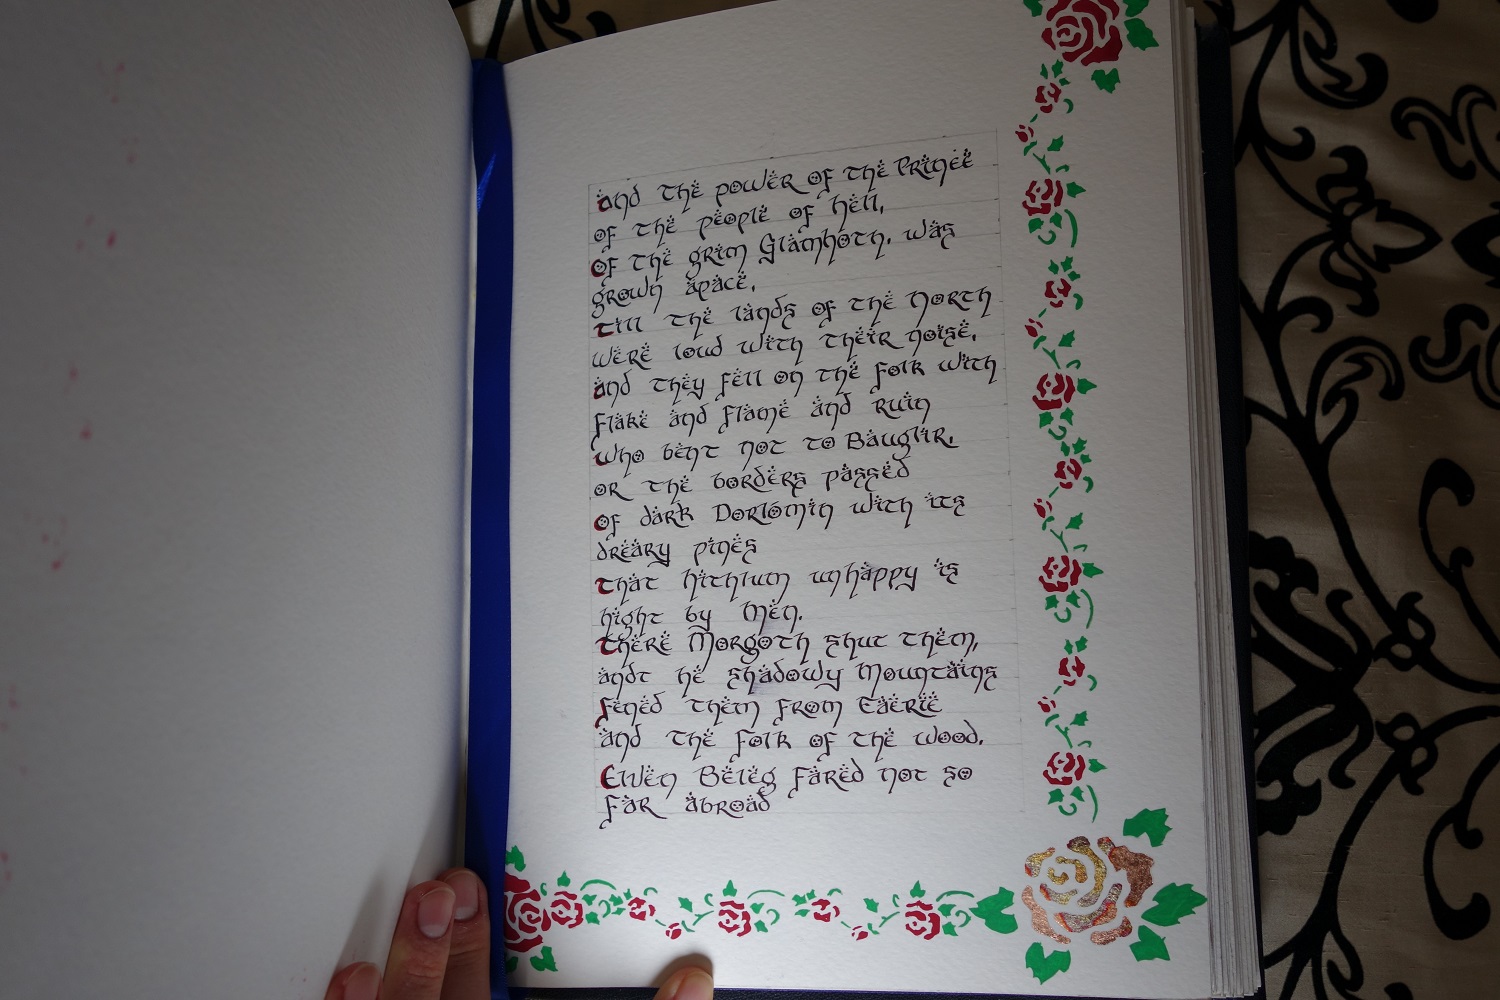 and the power of the Princë
of the people of hell,
of the grim Glamhoth, was
grown apace,
till the lands of the north
were loud with their noise,
and they fell on the folk with
flake and flame and ruin
who bent not to Bauglir,
or the borders passed
of dark Dorlómin with its
dreary pines
that hithlum unhappy is
hight by Men.
there Morgoth shut them,
andt he shadowy Mountains
fened them from Faërie
and the folk of the wood.
Ewen Beleg fared not so
far abroad